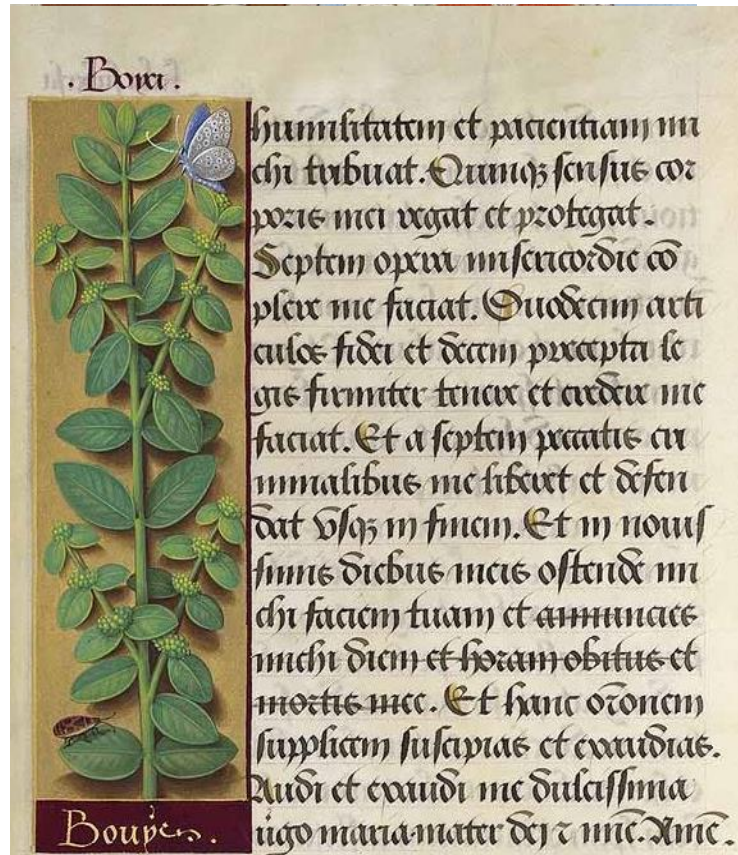 . Boxci .
humilitatem et pacientiam mi
chi tribuat. Quinqꝫ sensus cor
poris mei regat et protegat.
Septem opera misericordie cō
plere me faciat. Duodecim arti
culos fidei et decem precepta le
gis firmiter tenere et credere me
faciat. Et a septem peccatis cri
minalibus me liberet et defen
dat vsqꝫ in finem. Et in nouis
simis diebus meis ostende mi
chi faciem tuam et annuncies
michi diem et horam obitus et
mortis mee. Et hanc orōnem
supplicem suscipias et exaudias.
Audi et exaudi me dulcissima
uigo maria mater dei ⁊ mie. Amē.